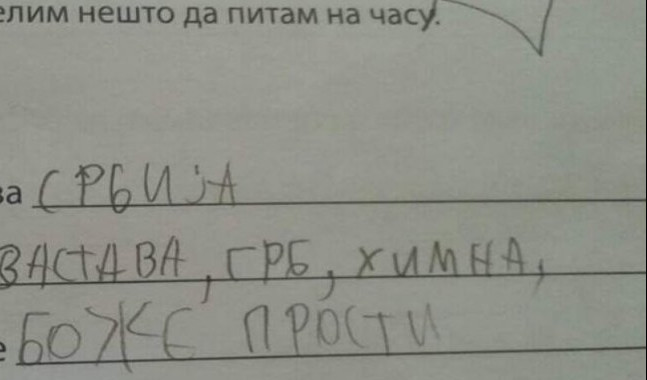 елим нешто да питам на часу.
ва СРБИЈА
ЗАСТАВА, ГРБ, ХИМНА,
е БОЖЕ ПРОСТИ